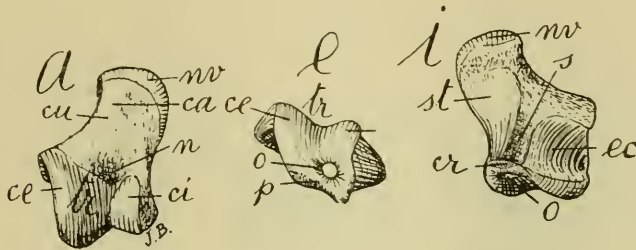 a
nv
cu
ca
n
ce
ci
J.B.
l
ce
tr
o
p
i
nv
s
st
cr
ec
o